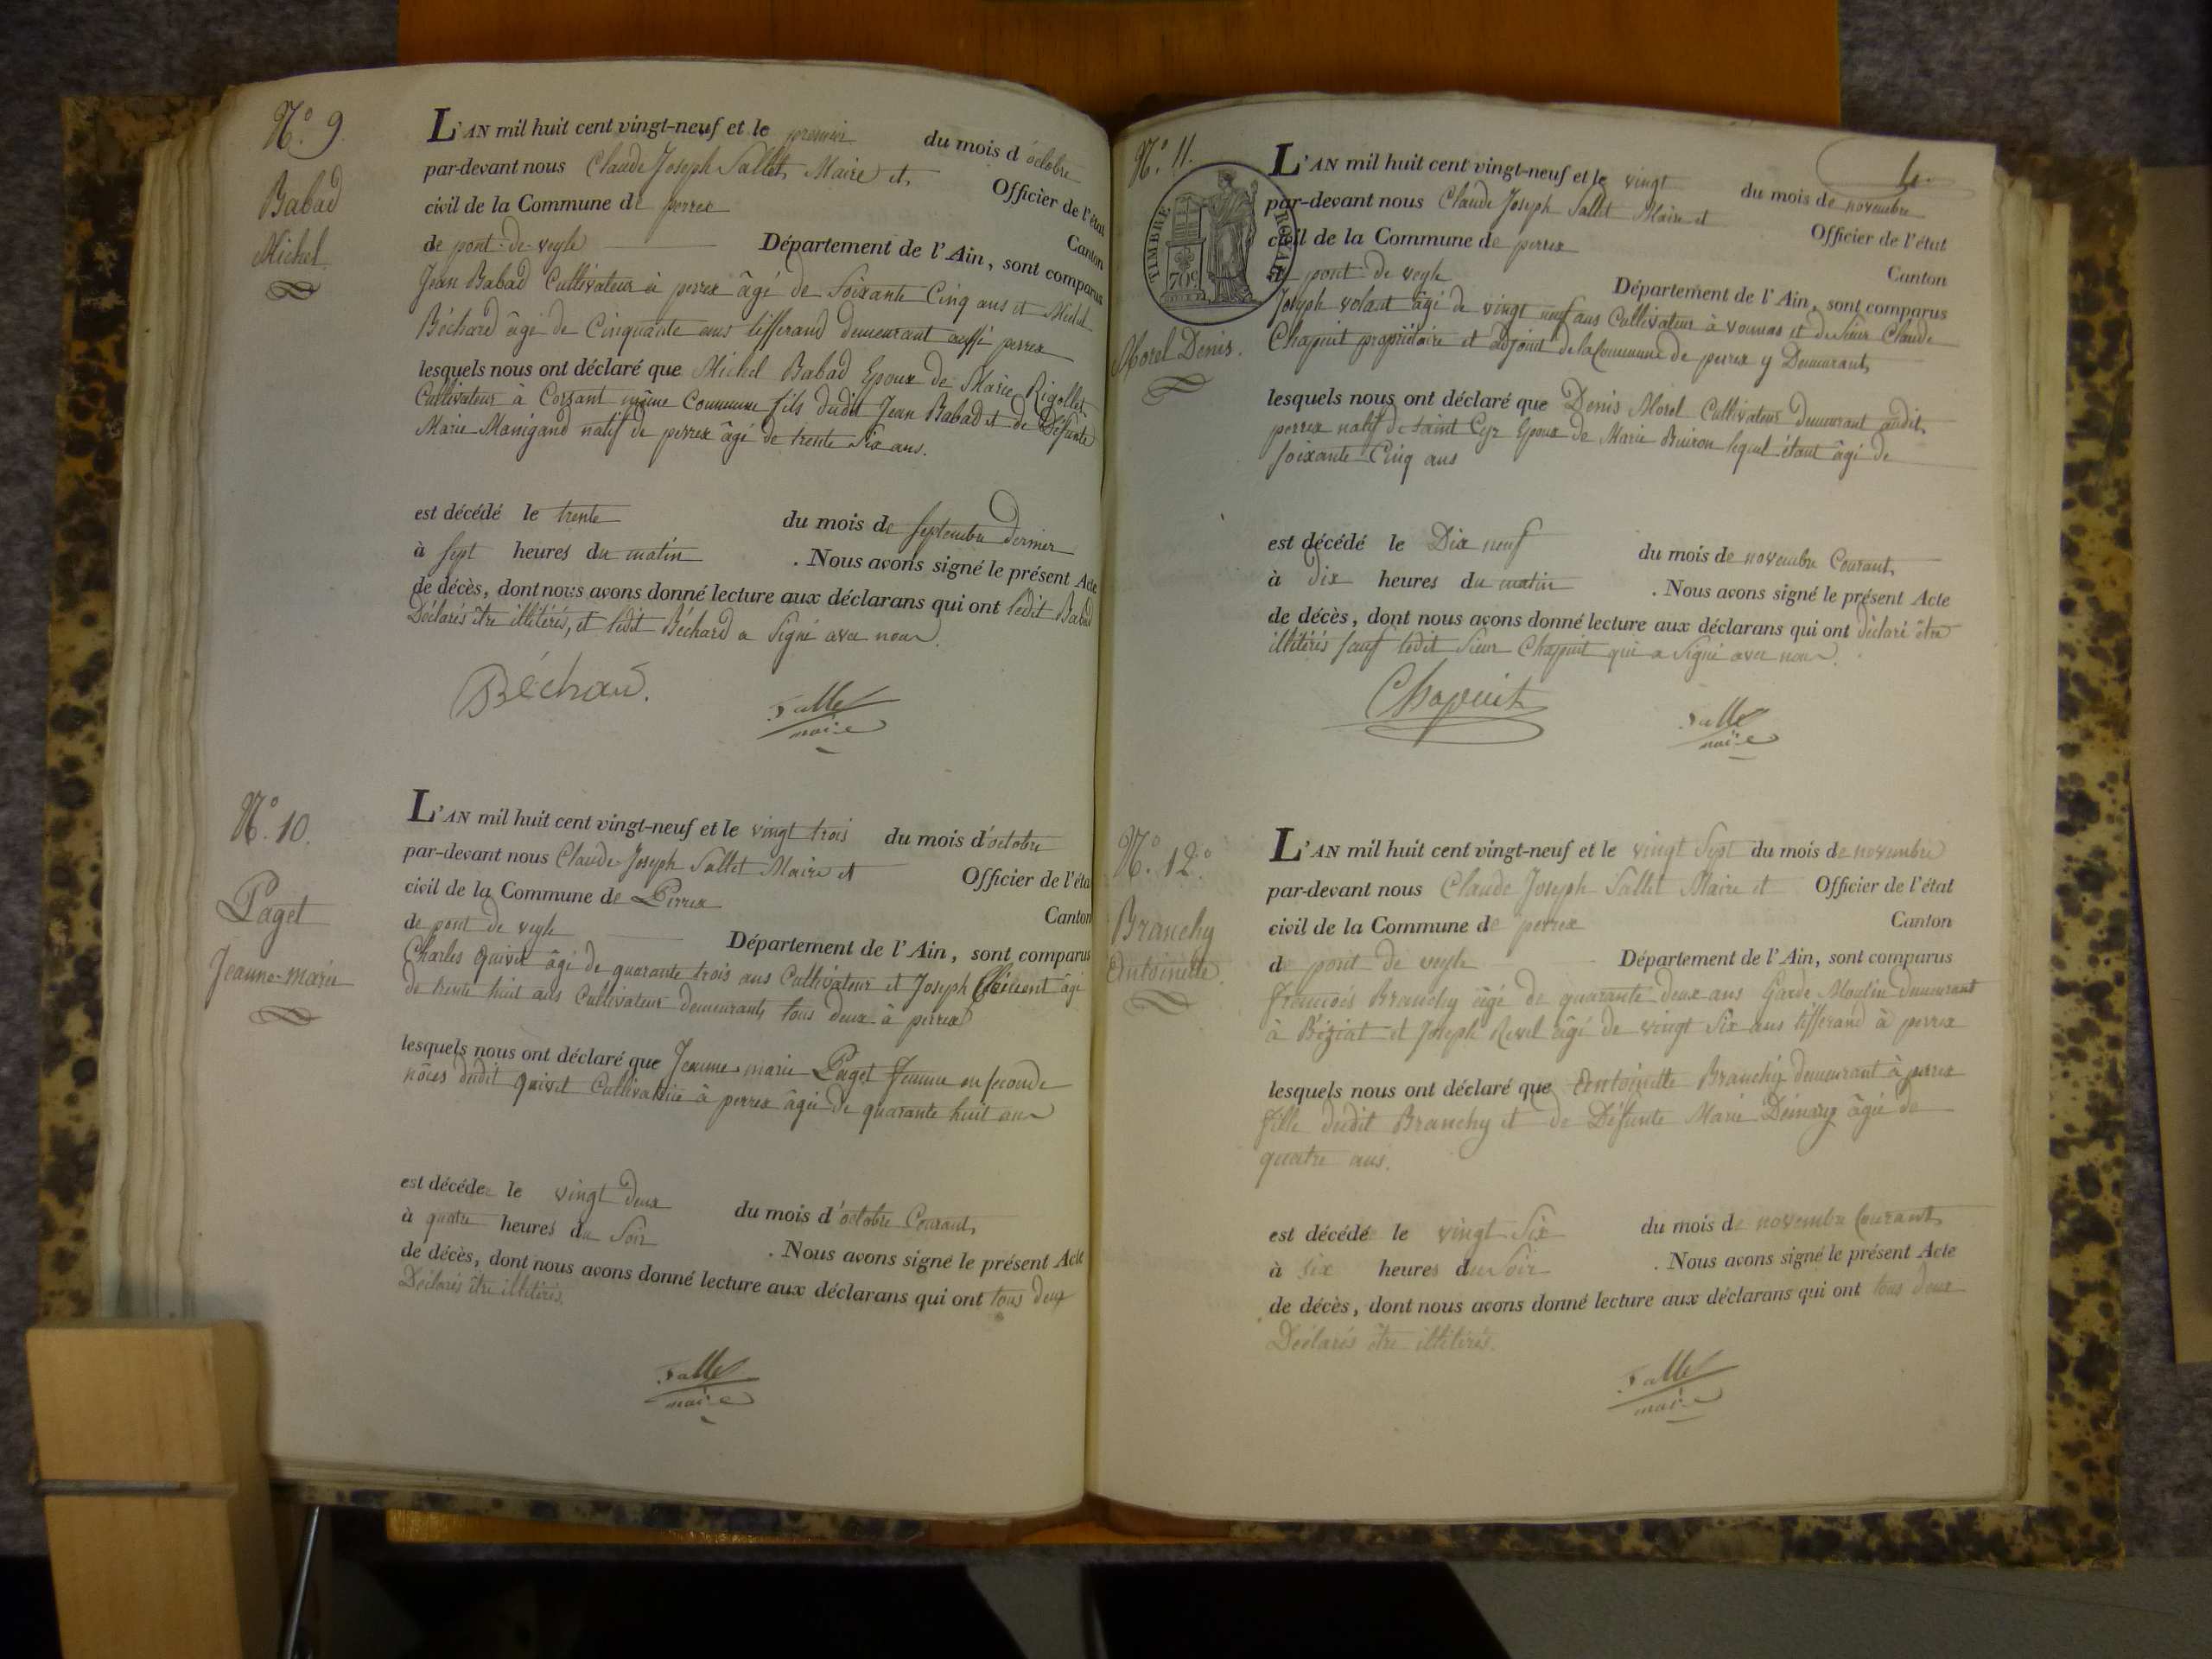 N.° 9.
Babad
Michel
L'AN mil huit cent vingt-neuf et le premier du mois d'octobre
par-devant nous Claude Joseph Sallet, Maire et Officier de l'état
civil de la Commune de perrex Canton
de pont-de-veyle Département de l'Ain, sont comparus
Jean Babad Cultivateur à perrex âgé de Soixante Cinq ans et Michel
Béchard âgé de Cinquante ans tisserand demeurant aussi perrex
lesquels nous ont déclaré que Michel Babad Epoux de Marie Rigollet
Cultivateur à Corsant même Commune fils dudit Jean Babad et de Défunte
Marie Manigand natif de perrex âgé de trente Six ans.
est décédé le trente du mois de septembre dernier
à sept heures du matin . Nous avons signé le présent Acte
de décès, dont nous avons donné lecture aux déclarans qui ont ledit Babad
Déclarés être illitérés, et ledit Béchard a Signé avec nous.
Béchard.
Salle
maire
N.° 10.
Paget
Jeanne-marie
L'AN mil huit cent vingt-neuf et le vingt trois du mois d'octobre
par-devant nous Claude-Joseph Sallet Maire et Officier de l'éta
civil de la Commune de Perrex Canton
de pont de veyle Département de l'Ain, sont comparus
Charles quivet âgé de quarante trois ans Cultivateur et Joseph Clément âgé
de trente huit ans Cultivateur demeurants tous deux à perrex
lesquels nous ont déclaré que Jeanne-marie Paget femme en seconde
nôces dudit quivet Cultivatrice à perrex âgée de quarante huit ans
est décédée le vingt deux du mois d'octobre Courant,
à quatre heures du Soir . Nous avons signé le présent Acte
de décès, dont nous avons donné lecture aux déclarans qui ont tous deux
Déclarés être illitérés.
Salle
maire
4.
N.° 11.
TIMBRE ROYAL
70 c
Morel Denis.
L'AN mil huit cent vingt-neuf et le vingt du mois de novembre
par-devant nous Claude Joseph Sallet Maire et Officier de l'état
civil de la Commune de perrex Canton
de pont de veyle Département de l'Ain, sont comparus
Joseph volant âgé de vingt neuf ans Cultivateur à vonnas et de Sieur Claude
Chapuit propriétaire et adjoint de la Commune de perrex y Demeurant,
lesquels nous ont déclaré que Denis Morel Cultivateur demeurant audit
perrex natif de Saint Cyr Epoux de Marie Buiron lequel étant âgé de
soixante Cinq ans
est décédé le Dix neuf du mois de novembre Courant,
à Dix heures du matin . Nous avons signé le présent Acte
de décès, dont nous avons donné lecture aux déclarans qui ont déclaré être
illitérés sauf ledit Sieur Chapuit qui a Signé avec nous.
Chapuit
Salle
maire
N.° 12.
Branchy
Antoinette.
L'AN mil huit cent vingt-neuf et le vingt Sept du mois de novembre
par-devant nous Claude Joseph Sallet Maire et Officier de l'état
civil de la Commune de perrex Canton
de pont de veyle Département de l'Ain, sont comparus
françois Branchy âgé de quarante deux ans Garde Moulin demeurant
à Béziat et Joseph Revel âgé de vingt Six ans tisserand à perrex
lesquels nous ont déclaré que Antoinette Branchy demeurant à perrex
fille dudit Branchy et de Défunte Marie âgée de
quatre ans.
est décédé le vingt-Six du mois de novembre Courant,
à six heures du Soir . Nous avons signé le présent Acte
de décès, dont nous avons donné lecture aux déclarans qui ont tous deux
Déclarés être illitérés.
Salle
maire